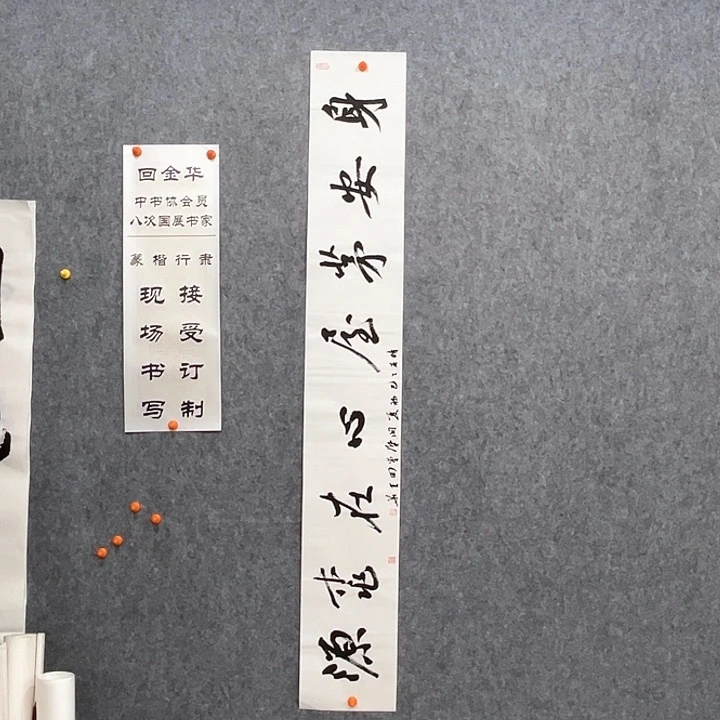 回金华
中书协会员
八次国展书家
篆楷行隶
现场书写
接受订制
身安茅屋心在桃源